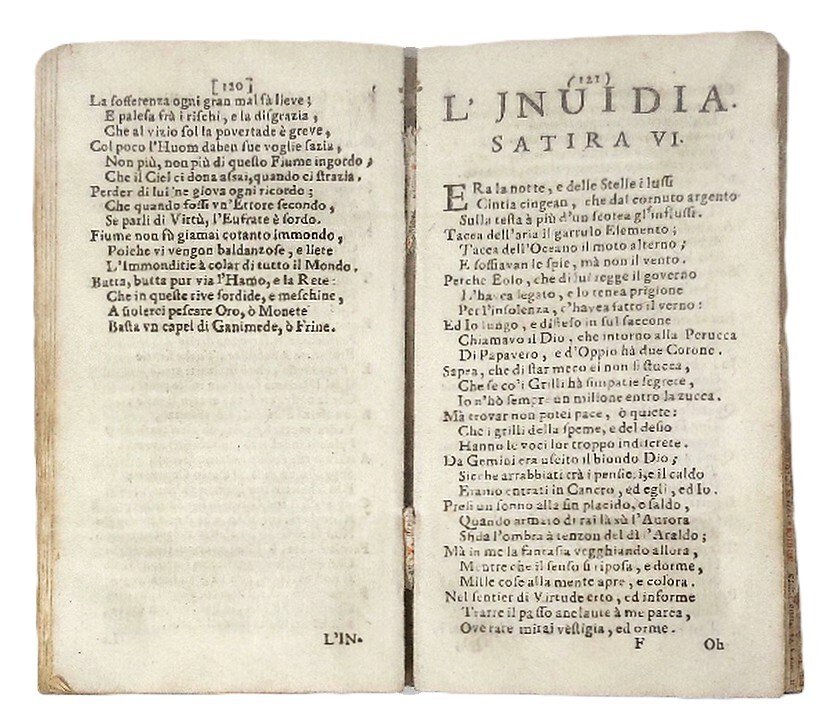 [120]
La sofferenza ogni gran mal fà lieve;
E palesa frà i rischi, e la disgrazia,
Che al vizio sol la povertade è greve,
Col poco l'Huom daben sue voglie sazia,
Non più, non più di questo Fiume ingordo,
Che il Ciel ci dona assai, quando ci strazia.
Perder di lui ne giova ogni ricordo;
Che quando fossi vn'Ettore secondo,
Se parli di Virtù, l'Eufrate è sordo.
Fiume non fù giamai cotanto immondo,
Poiche vi vengon baldanzose, e liete
L'Immonditie à colar di tutto il Mondo.
Butta, butta pur via l'Hamo, e la Rete:
Che in queste rive sordide, e meschine,
A volerci pescare Oro, ò Monete
Basta vn capel di Ganimede, ò Frine.
L'IN.
(121)
L' JNUIDIA.
SATIRA VI.
ERa la notte, e delle Stelle i lussi
Cintia cingean, che dal cornuto argento
Sulla testa à più d'un scotea gl'influssi.
Tacea dell'aria il garrulo Elemento;
Tacea dell'Oceano il moto alterno;
E soffiavan le spie, mà non il vento.
Perche Eolo, che di lui regge il governo
L'havea legato, e lo tenea prigione
Per l'insolenza, c'havea fatto il verno:
Ed Io lungo, e disteso in sul saccone
Chiamavo il Dio, che intorno alla Perucca
Di Papavero, e d'Oppio hà due Corone.
Sapea, che di star meco ei non si stucca,
Che se co'i Grilli hà simpatie segrete,
Io n'hò sempre un milione entro la zucca.
Mà trovar non potei pace, ò quiete:
Che i grilli della speme, e del desio
Hanno le voci lor troppo indiscrete.
Da Gemini era uscito il biondo Dio;
Sicche arrabbiati trà i pensieri, e il caldo
Eramo entrati in Cancro, ed egli, ed Io.
Presi un sonno alla fin placido, e saldo,
Quando armato di rai là sù l'Aurora
Sfida l'ombra à tenzon del dì l'Araldo;
Mà in me la fantasia vegghiando allora,
Mentre che il senso si riposa, e dorme,
Mille cose alla mente apre, e colora.
Nel sentier di Virtude erto, ed informe
Trarre il passo anelante à me parea,
Ove rare mirai vestigia, ed orme.
F
Oh